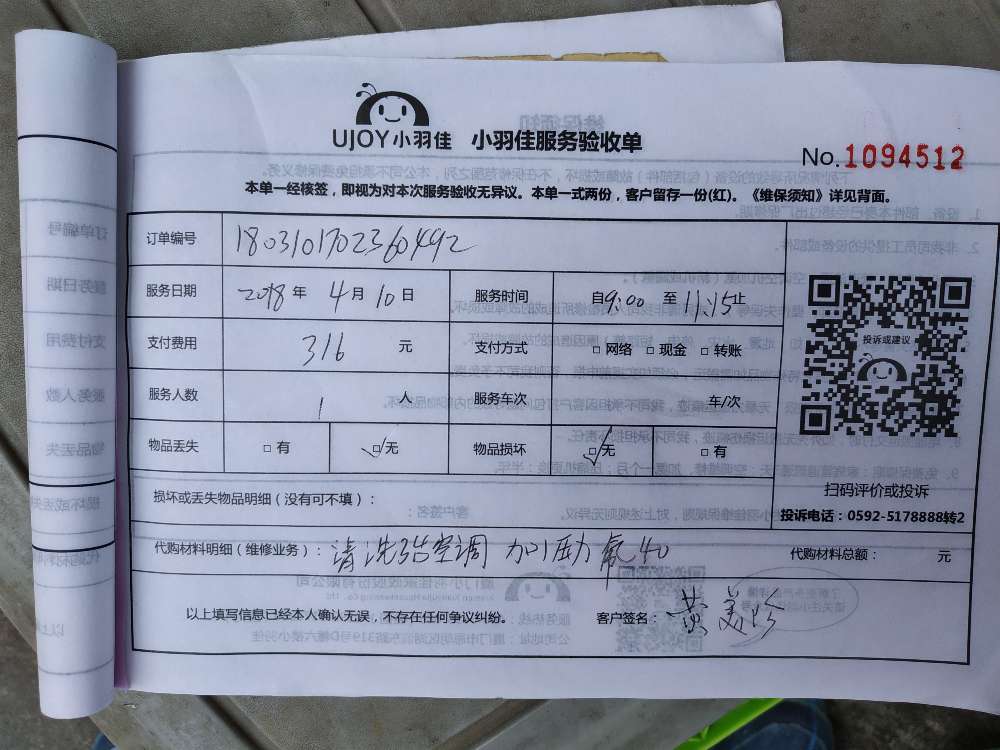 UJOY小羽佳 小羽佳服务验收单
No.1094512
本单一经核签，即视为对本次服务验收无异议。本单一式两份，客户留存一份(红)。《维保须知》详见背面。
订单编号 1803101702360492
服务日期 2018年 4月10日 服务时间 自9:00 至 11:15止
支付费用 316 元 支付方式 □网络 □现金 □转账
服务人数 1 人 服务车次 车/次
物品丢失 □有 ☑无 物品损坏 ☑无 □有
投诉或建议
扫码评价或投诉
投诉电话：0592-5178888转2
损坏或丢失物品明细（没有可不填）：
代购材料明细（维修业务）：清洗3台空调 加1助氟40 代购材料总额： 元
以上填写信息已经本人确认无误，不存在任何争议纠纷。 客户签名：黄美珍